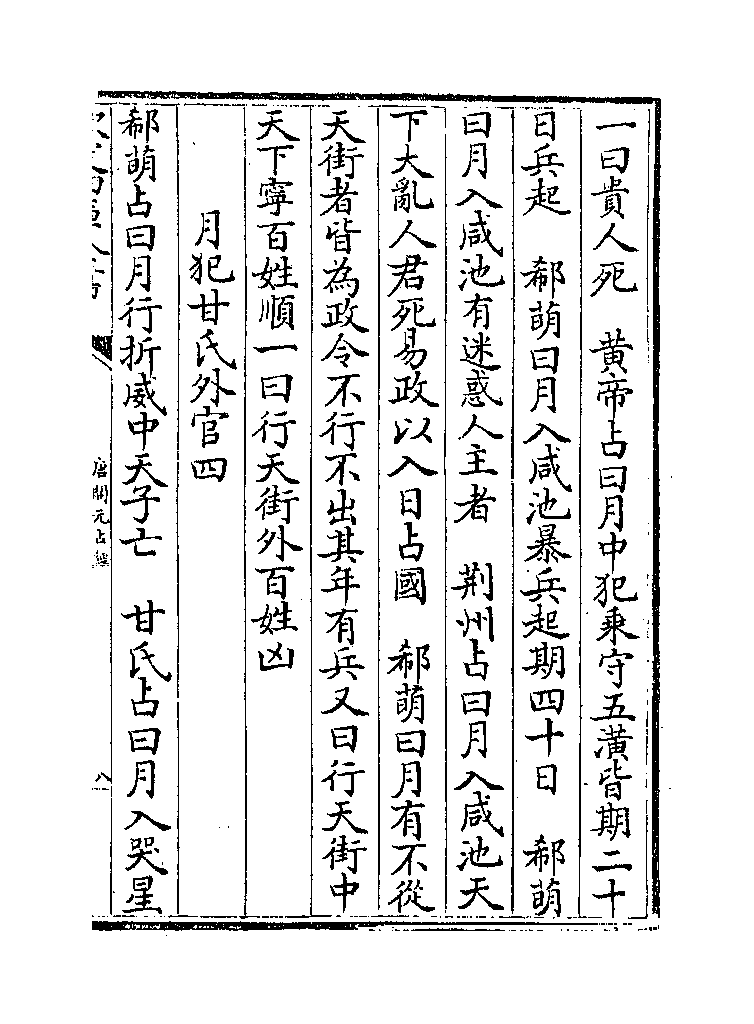 一曰貴人死　黄帝占曰月中犯乘守五潢皆期二十
日兵起　郗萌曰月入咸池暴兵起期四十日　郗萌
曰月入咸池有迷惑人主者　荆州占曰月入咸池天
下大亂人君死易政以入日占國　郗萌曰月有不從
天街者皆為政令不行不出其年有兵又曰行天街中
天下寧百姓順一曰行天街外百姓凶
月犯甘氏外官四
郗萌占曰月行折威中天子亡　甘氏占曰月入哭星
唐開元占經
八